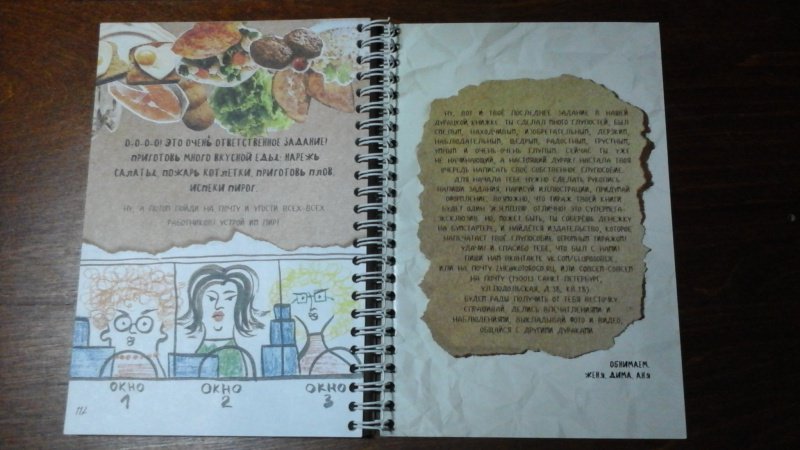 О-О-О-О! ЭТО ОЧЕНЬ ОТВЕТСТВЕННОЕ ЗАДАНИЕ!
ПРИГОТОВЬ МНОГО ВКУСНОЙ ЕДЫ: НАРЕЖЬ
САЛАТЫ, ПОЖАРЬ КОТЛЕТКИ, ПРИГОТОВЬ ПЛОВ,
ИСПЕКИ ПИРОГ.
НУ, А ПОТОМ ПОЙДИ НА ПОЧТУ И УГОСТИ ВСЕХ-ВСЕХ
РАБОТНИКОВ! УСТРОЙ ИМ ПИР!
ОКНО 1
ОКНО 2
ОКНО 3
112
НУ, ВОТ И ТВОЁ ПОСЛЕДНЕЕ ЗАДАНИЕ В НАШЕЙ
ДУРАЦКОЙ КНИЖКЕ. ТЫ СДЕЛАЛ МНОГО ГЛУПОСТЕЙ, БЫЛ
СМЕЛЫМ, НАХОДЧИВЫМ, ИЗОБРЕТАТЕЛЬНЫМ, ДЕРЗКИМ,
НАБЛЮДАТЕЛЬНЫМ, ЩЕДРЫМ, РАДОСТНЫМ, ГРУСТНЫМ,
УМНЫМ И ОЧЕНЬ-ОЧЕНЬ ГЛУПЫМ. СЕЙЧАС ТЫ УЖЕ
НЕ НАЧИНАЮЩИЙ, А НАСТОЯЩИЙ ДУРАК! НАСТАЛА ТВОЯ
ОЧЕРЕДЬ НАПИСАТЬ СВОЁ СОБСТВЕННОЕ ГЛУПОСОБИЕ.
ДЛЯ НАЧАЛА ТЕБЕ НУЖНО СДЕЛАТЬ РУКОПИСЬ:
НАПИШИ ЗАДАНИЯ, НАРИСУЙ ИЛЛЮСТРАЦИИ, ПРИДУМАЙ
ОФОРМЛЕНИЕ. ВОЗМОЖНО, ЧТО ТИРАЖ ТВОЕЙ КНИГИ
БУДЕТ ОДИН ЭКЗЕМПЛЯР. ОТЛИЧНО! ЭТО СУПЕРМЕГА-
ЭКСКЛЮЗИВ. НО, МОЖЕТ БЫТЬ, ТЫ СОБЕРЁШЬ ДЕНЕЖКУ
НА БУМСТАРТЕРЕ, И НАЙДЁТСЯ ИЗДАТЕЛЬСТВО, КОТОРОЕ
НАПЕЧАТАЕТ ТВОЁ ГЛУПОСОБИЕ ОГРОМНЫМ ТИРАЖОМ!
УДАЧИ! И СПАСИБО ТЕБЕ, ЧТО БЫЛ С НАМИ!
ПИШИ НАМ ВКОНТАКТЕ
ИЛИ НА ПОЧТУ ИЛИ СОВСЕМ-СОВСЕМ
НА ПОЧТУ САНКТ-ПЕТЕРБУРГ,
УЛ. ПОДОЛЬСКАЯ, Д. 38, КВ. 18).
БУДЕМ РАДЫ ПОЛУЧИТЬ ОТ ТЕБЯ ВЕСТОЧКУ.
СПРАШИВАЙ, ДЕЛИСЬ ВПЕЧАТЛЕНИЯМИ И
НАБЛЮДЕНИЯМИ, ВЫКЛАДЫВАЙ ФОТО И ВИДЕО,
ОБЩАЙСЯ С ДРУГИМИ ДУРАКАМИ.
ОБНИМАЕМ,
ЖЕНЯ, ДИМА, АНЯ